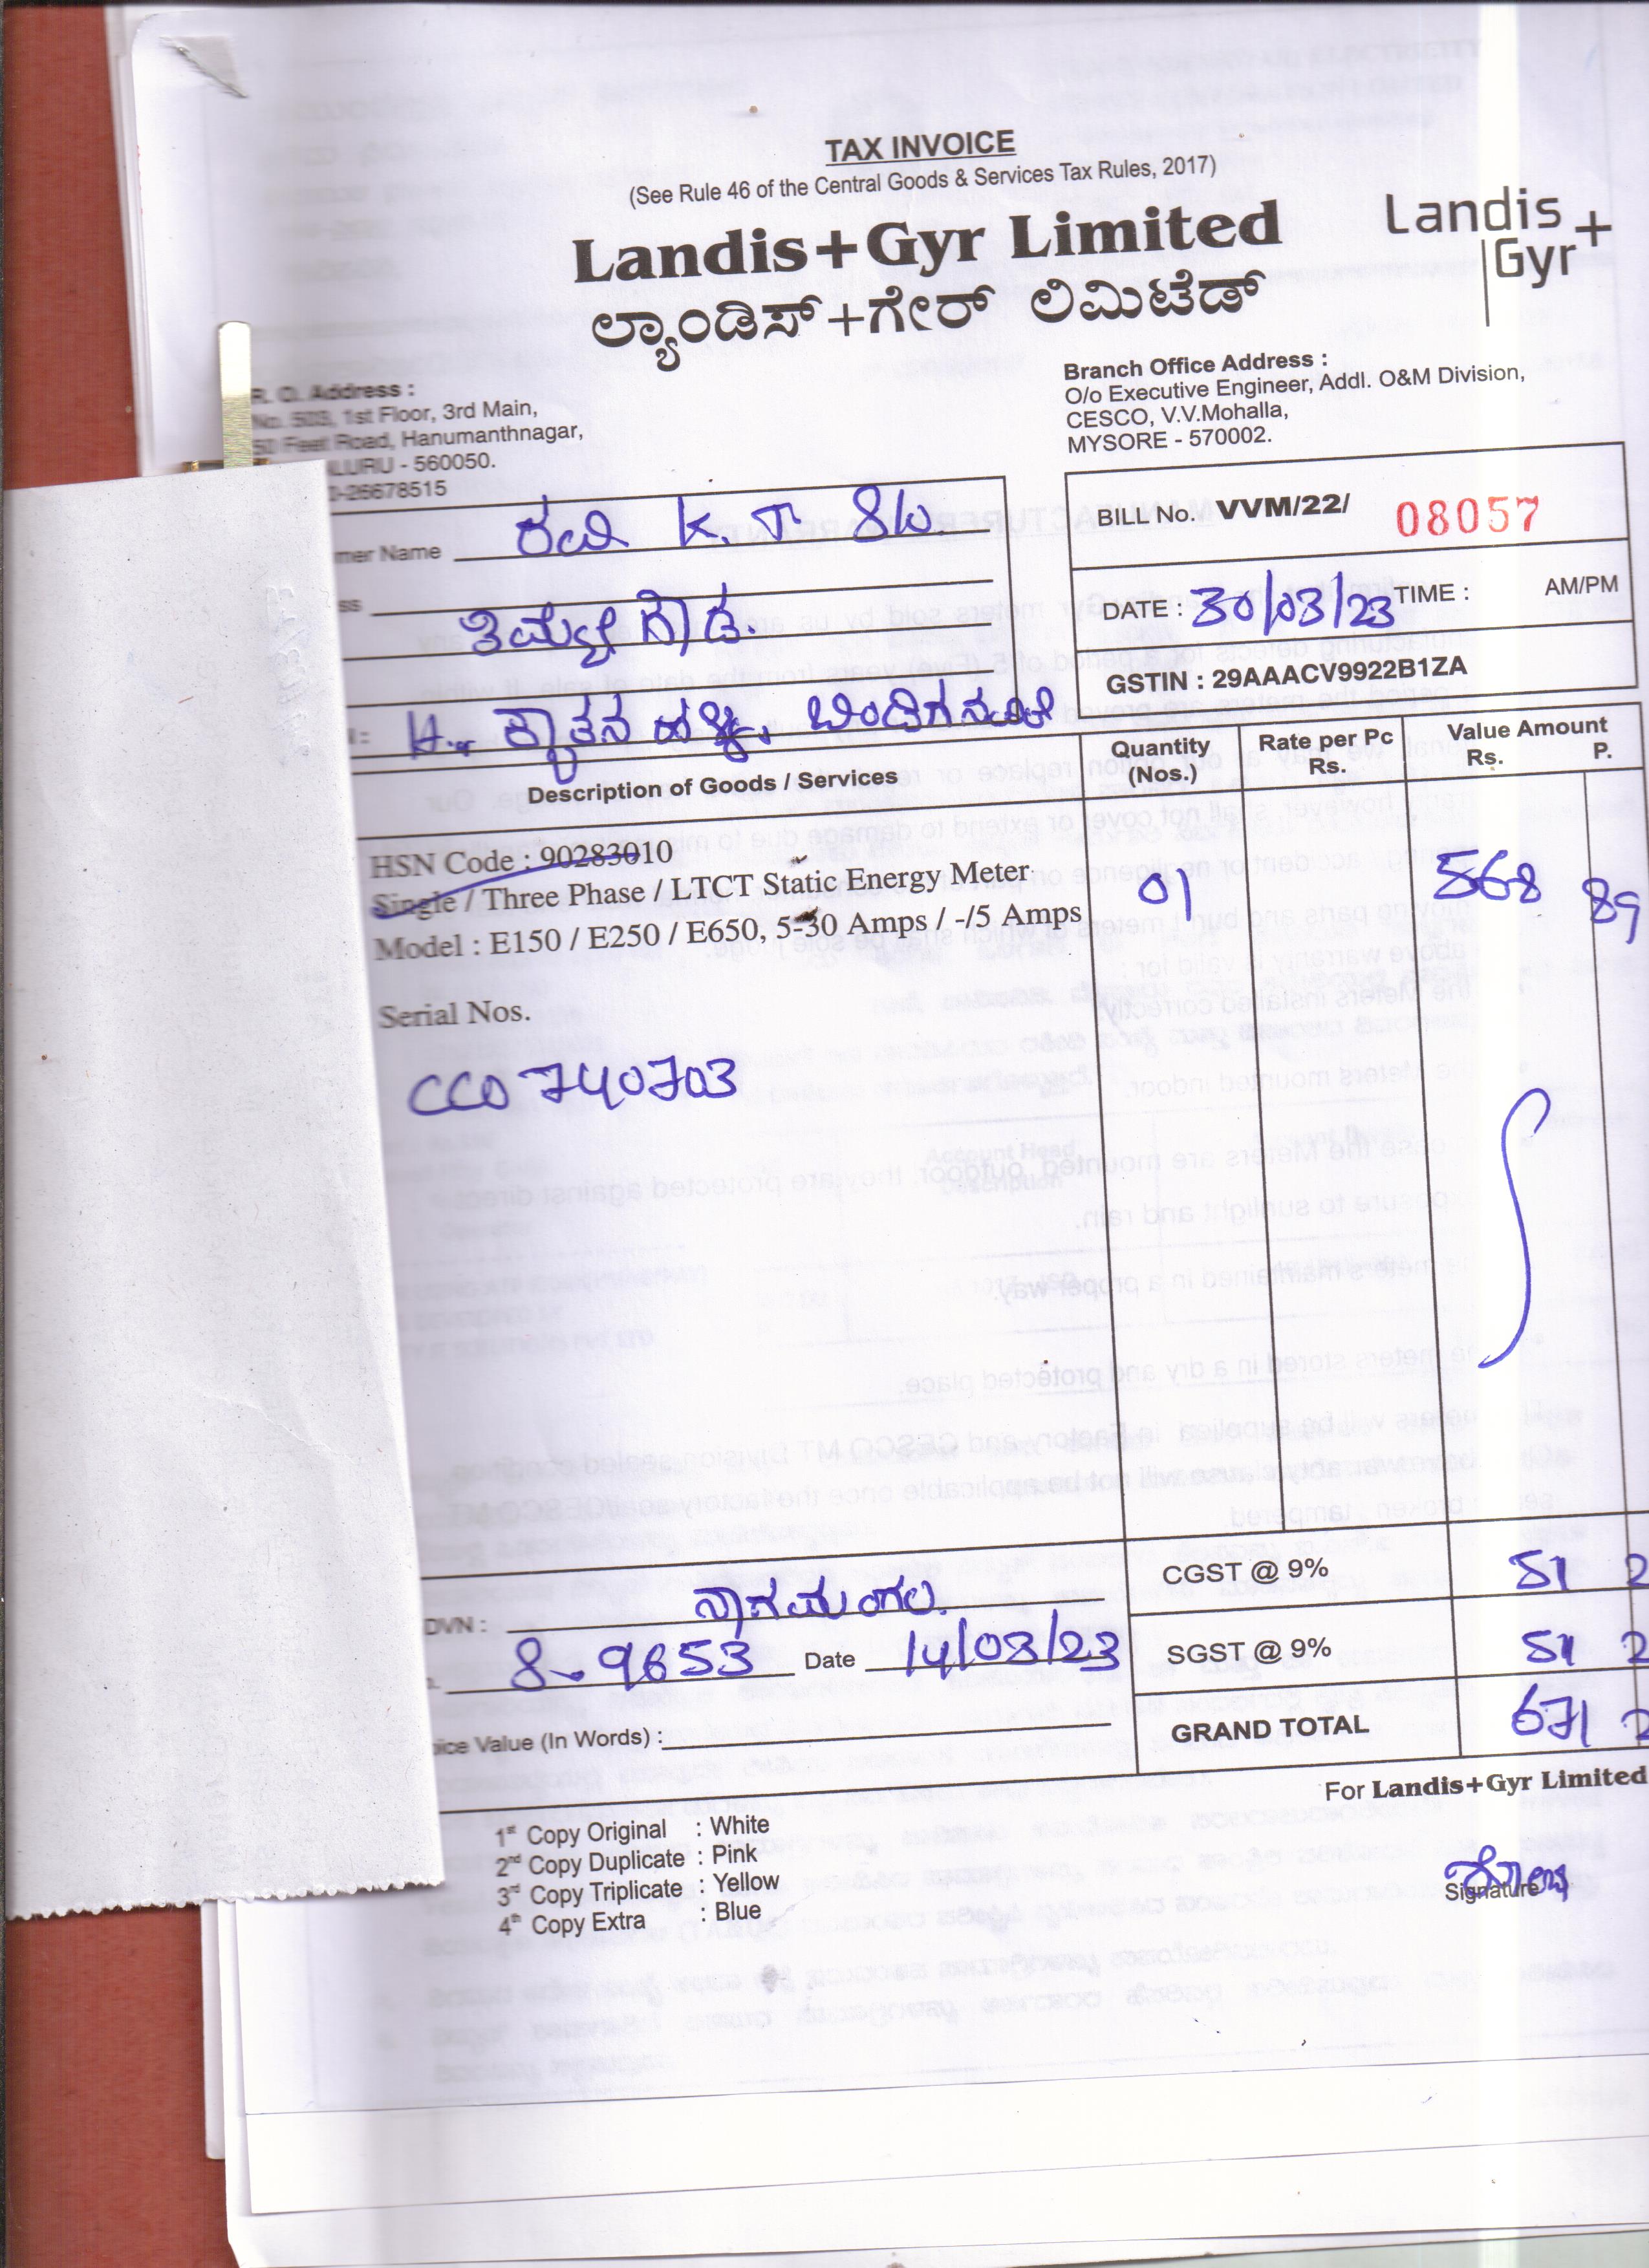 TAX INVOICE
(See Rule 46 of the Central Goods & Services Tax Rules, 2017)
Landis+Gyr Limited
Landis+
Gyr
ಲ್ಯಾಂಡಿಸ್+ಗೇರ್ ಲಿಮಿಟೆಡ್
R. O. Address :
No. 503, 1st Floor, 3rd Main,
50 Feet Road, Hanumanthnagar,
LURU - 560050.
0-26678515
Branch Office Address :
O/o Executive Engineer, Addl. O&M Division,
CESCO, V.V.Mohalla,
MYSORE - 570002.
mer Name ರವಿ K. S/o.
ss
ತಿಮ್ಮೇಗೌಡ.
BILL No. VVM/22/ 08057
DATE : 30/03/23 TIME : AM/PM
GSTIN : 29AAACV9922B1ZA
ಬಿಂಡಿಗನವಿಲೆ
Description of Goods / Services
Quantity (Nos.)
Rate per Pc Rs.
Value Amount Rs. P.
HSN Code : 90283010
Single / Three Phase / LTCT Static Energy Meter 01 568 89
Model : E150 / E250 / E650, 5-30 Amps / -/5 Amps
Serial Nos.
CC0740703
DVN : ನಾಗಮಂಗಲ.
8-9653 Date 14/03/23
oice Value (In Words) :
CGST @ 9% 51 2
SGST @ 9% 51 2
GRAND TOTAL 671 2
For Landis+Gyr Limited
Signature
1st Copy Original : White
2nd Copy Duplicate : Pink
3rd Copy Triplicate : Yellow
4th Copy Extra : Blue